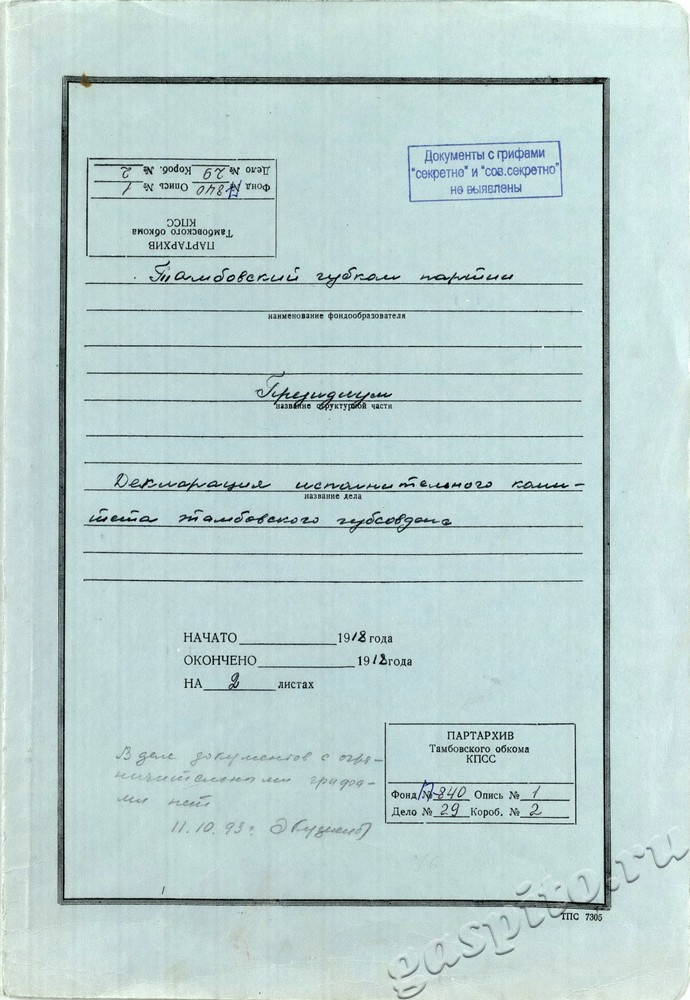 Документы с грифами
"секретно" и "сов.секретно"
не выявлены
ПАРТАРХИВ
Тамбовского обкома
КПСС
Фонд № П-840 Опись № 1
Дело № 29 Короб. № 2
Тамбовский губком партии
наименование фондообразователя
Президиум
название структурной части
Декларация исполнительного коми-
название дела
тета тамбовского губсовдепа
НАЧАТО 1918 года
ОКОНЧЕНО 1918 года
НА 2 листах
В деле документов с огра-
ничительными грифа-
ми нет
11.10.93 г.
ПАРТАРХИВ
Тамбовского обкома
КПСС
Фонд № П-840 Опись № 1
Дело № 29 Короб. № 2
ТПС 7305
gaspito.ru